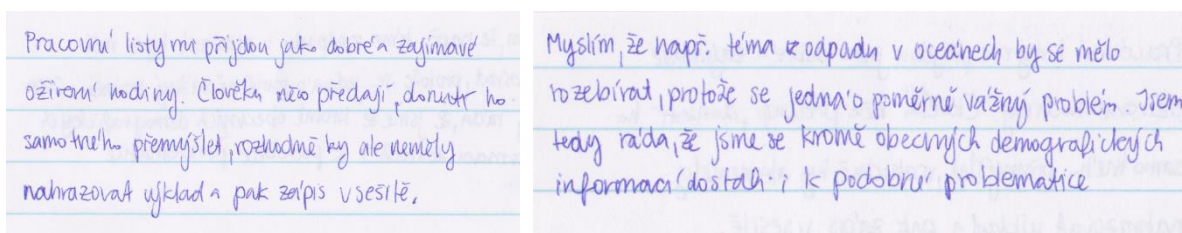 Pracovní listy mi přijdou jako dobré a zajímavé
oživení hodiny. Člověku něco předají, donutí ho
samotného přemýšlet, rozhodně by ale neměly
nahrazovat výklad a pak zápis v sešitě.
Myslím, že např. téma odpadu v oceánech by se mělo
rozebírat, protože se jedná o poměrně vážný problém. Jsem
tedy ráda, že jsme se kromě obecných demografických
informací dostali i k podobné problematice